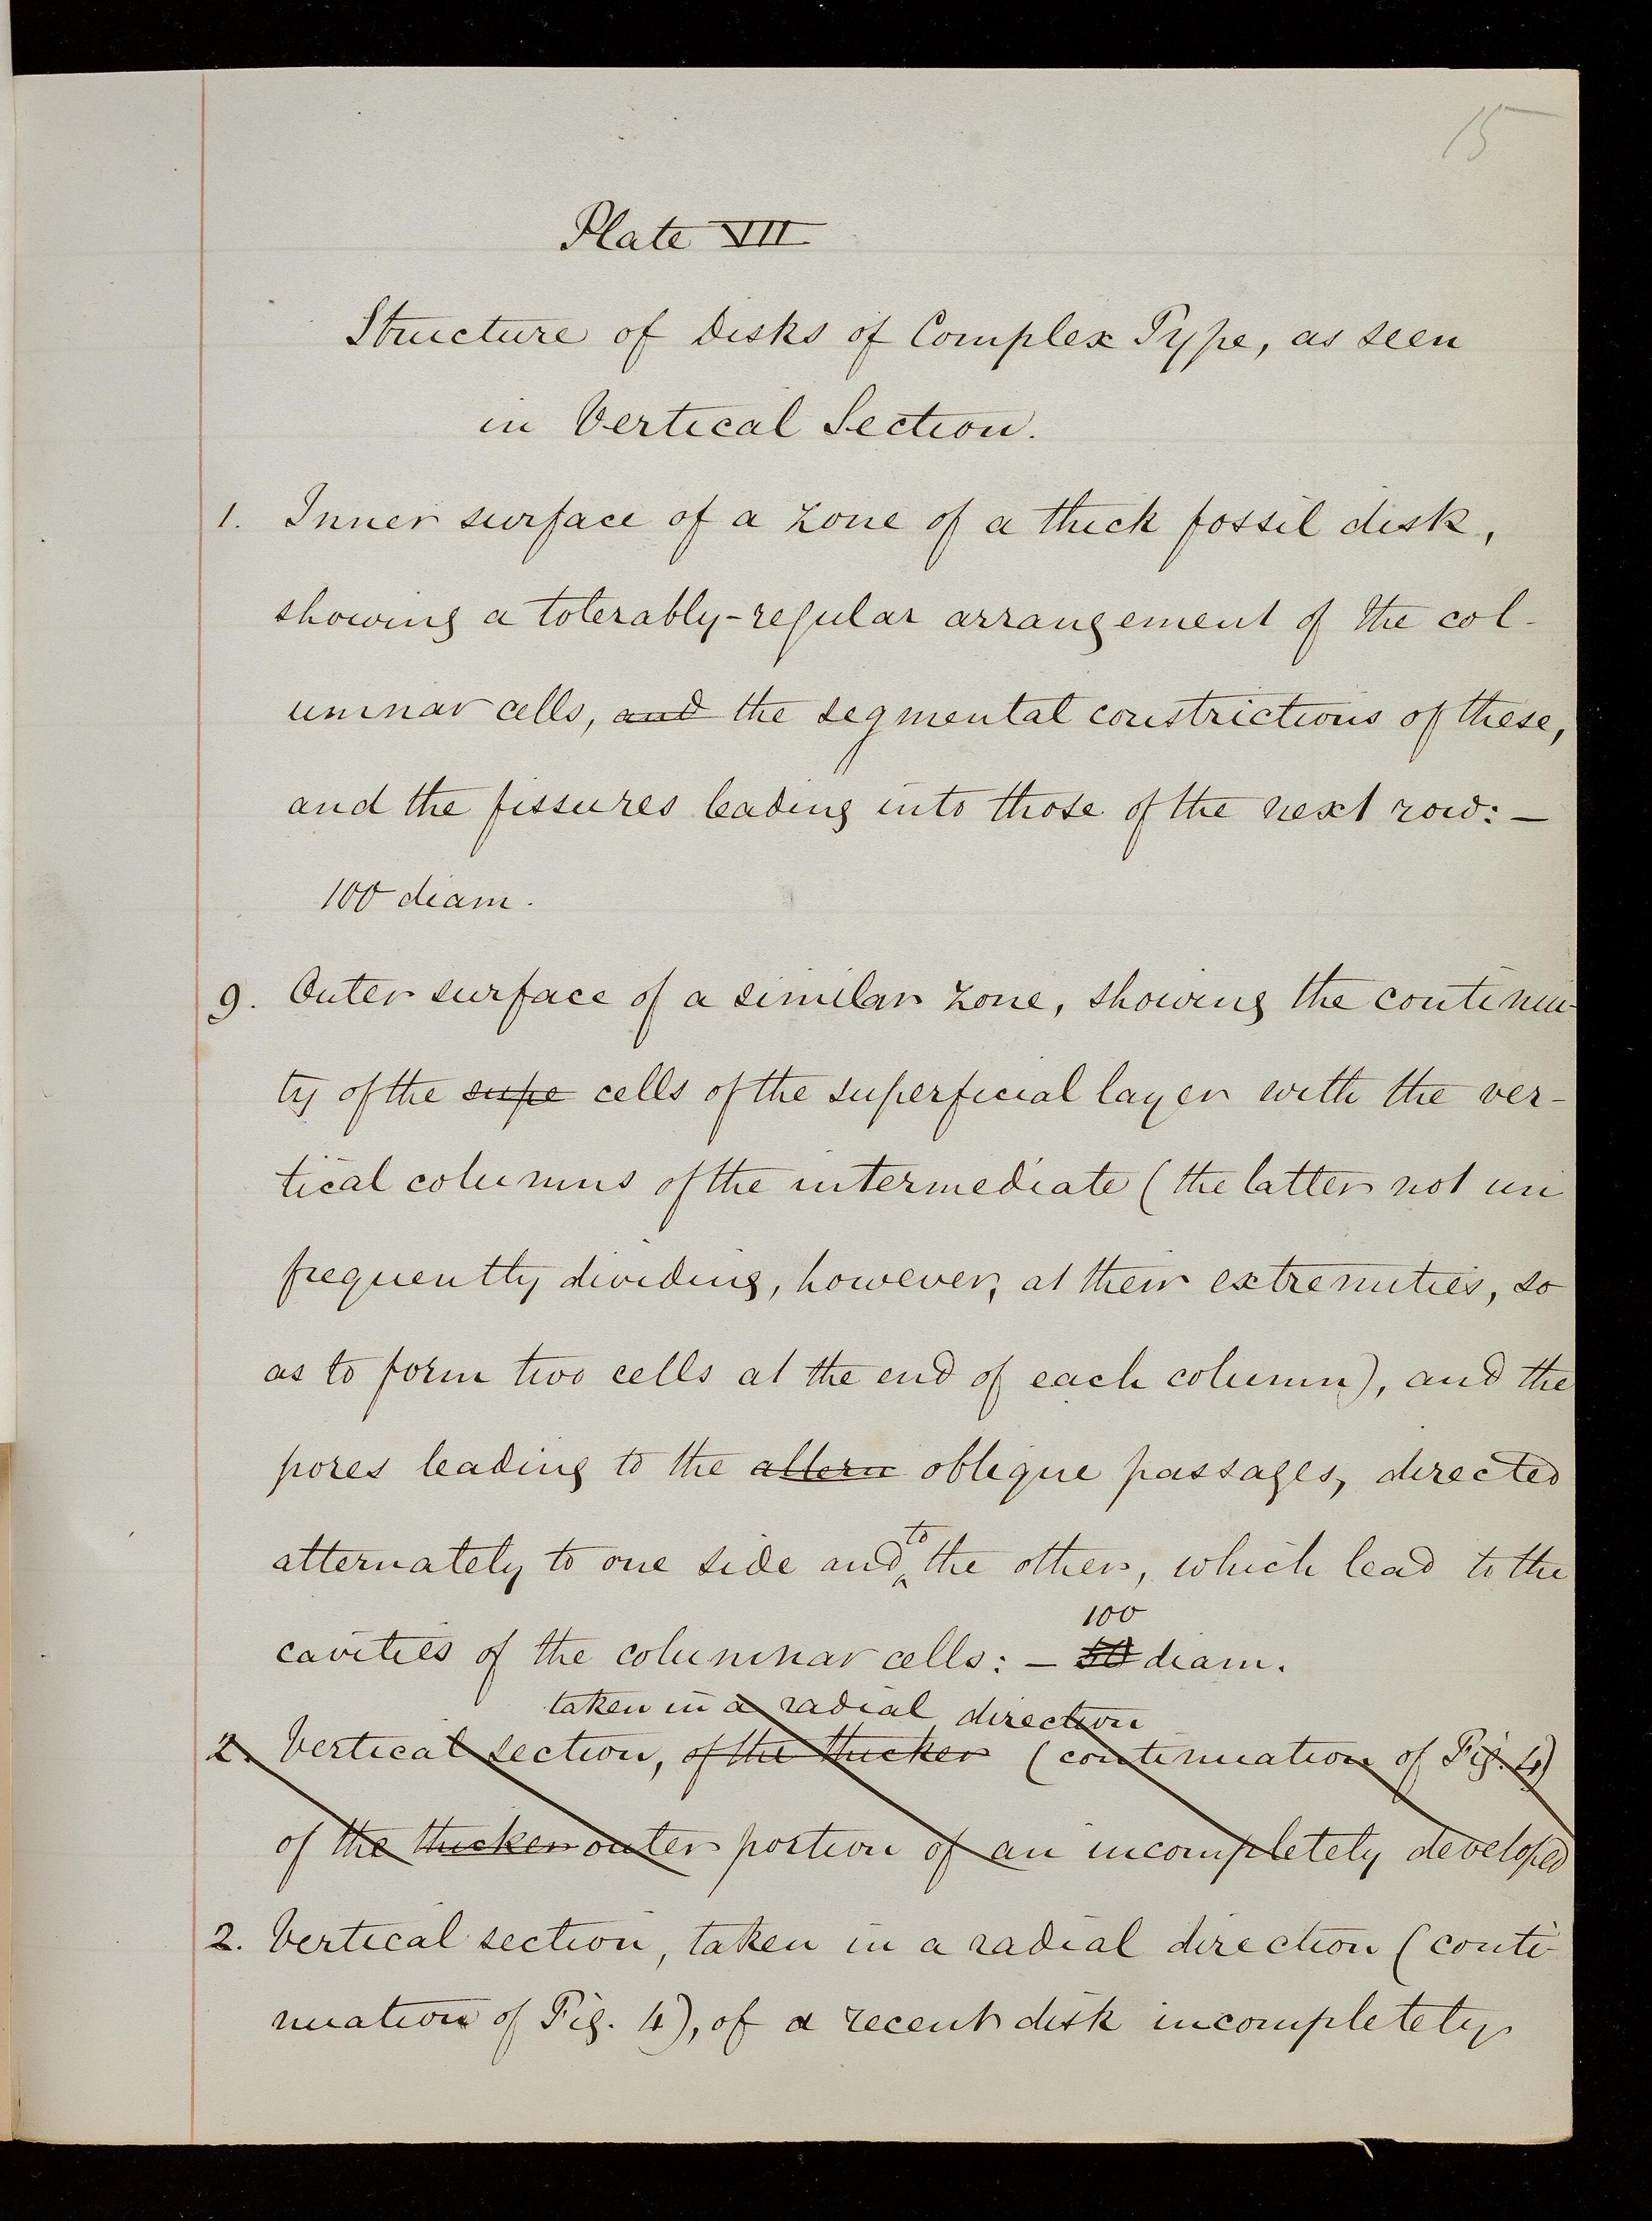 15
Plate VII
Structure of Disks of Complex Type, as seen
in Vertical Section.
1. Inner surface of a zone of a thick fossil disk,
showing a tolerably-regular arrangement of the col-
umnar cells, and the segmental constrictions of these,
and the fissures leading into those of the next row: —
100 diam.
9. Outer surface of a similar zone, showing the continui-
ty of the supe cells of the superficial layer with the ver-
tical columns of the intermediate (the latter not un
frequently dividing, however, at their extremities, so
as to form two cells at the end of each column), and the
pores leading to the altern oblique passages, directed
to
alternately to one side and the other, which lead to the
100
cavities of the columnar cells: — 50 diam.
taken in a radial direction
2. Vertical section, of the thicker (continuation of Fig. 4)
of the thicker outer portion of an incompletely developed
2. Vertical section, taken in a radial direction (conti-
nuation of Fig. 4), of a recent disk incompletely